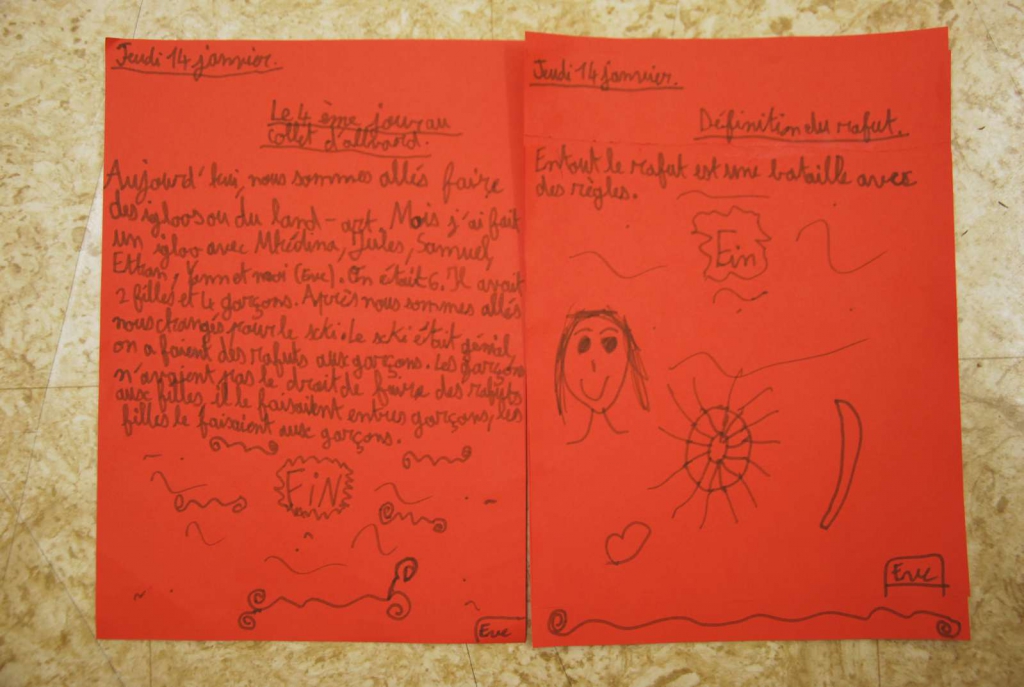 Jeudi 14 janvier.
Le 4 ème jour au
Collet d'allevard.
Aujourd'hui, nous sommes allés faire
des igloos ou du land-art. Mois j'ai fait
un igloo avec Jules, Samuel,
Ethan, Yann et moi (Eve). On était 6. Il avait
2 filles et 4 garçons. Après nous sommes allés
nous changés pour le scki. Le scki était génial,
on a faient des rafuts aux garçons. Les garçons
n'avaient pas le droit de faire des rafuts
aux filles, il le faisaient entres garçons, les
filles le faisaient aux garçons.
FiN
Eve
Jeudi 14 janvier.
Définition du rafut.
Entout le rafut est une bataille avec
des règles.
Fin
Eve